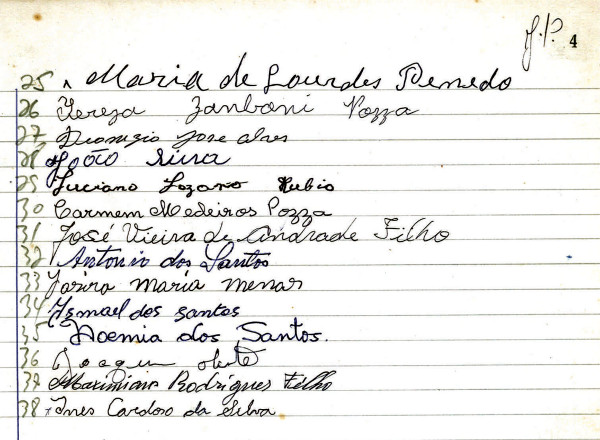 J.P. 4
25 Maria de Lourdes Penedo
26 Tereza Zanboni Pozza
27 Dionizio Jose alves
28 João
29 Luciano Lozano Rubio
30 Carmem Medeiros Pozza
31 José Vieira de Andrade Filho
32 Antonio dos Santos
33 Maria
34 Ismael dos santos
35 Noemia dos Santos.
36
37 Maximiano Rodrigues Filho
38 Ines Cardoso da Silva